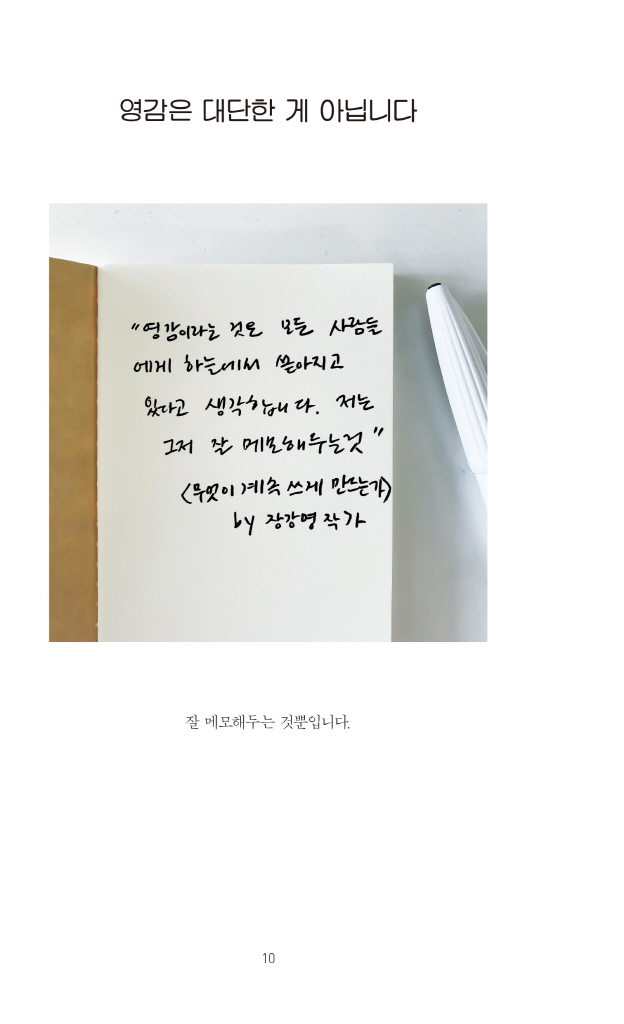 영감은 대단한 게 아닙니다
"영감이라는 것은 모든 사람들
에게 하늘에서 쏟아지고
있다고 생각합니다. 저는
그저 잘 메모해두는것"
<무엇이 계속 쓰게 만드는가>
by 장강명 작가
잘 메모해두는 것뿐입니다.
10